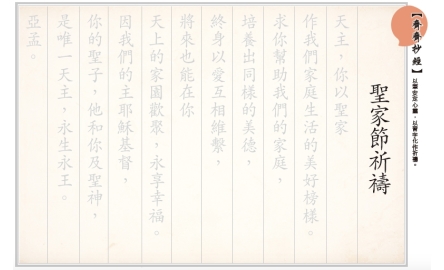 【齊齊抄經】
以靈安定心靈,以習字化作祈禱。
聖家節祈禱
天主,你以聖家
作我們家庭生活的美好榜樣。
求你幫助我們的家庭,
培養出同樣的美德,
終身以愛互相維繫,
將來也能在你
天上的家園歡聚,永享幸福。
因我們的主耶穌基督,
你的聖子,他和你及聖神,
是唯一天主,永生永王。
亞孟。